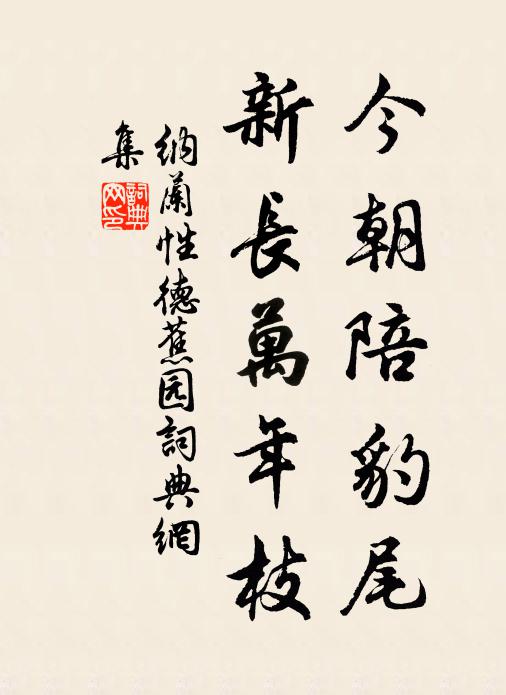 今朝陪豹尾
新長萬年枝
納蘭性德蕉园詞典網
集
詞典
网印